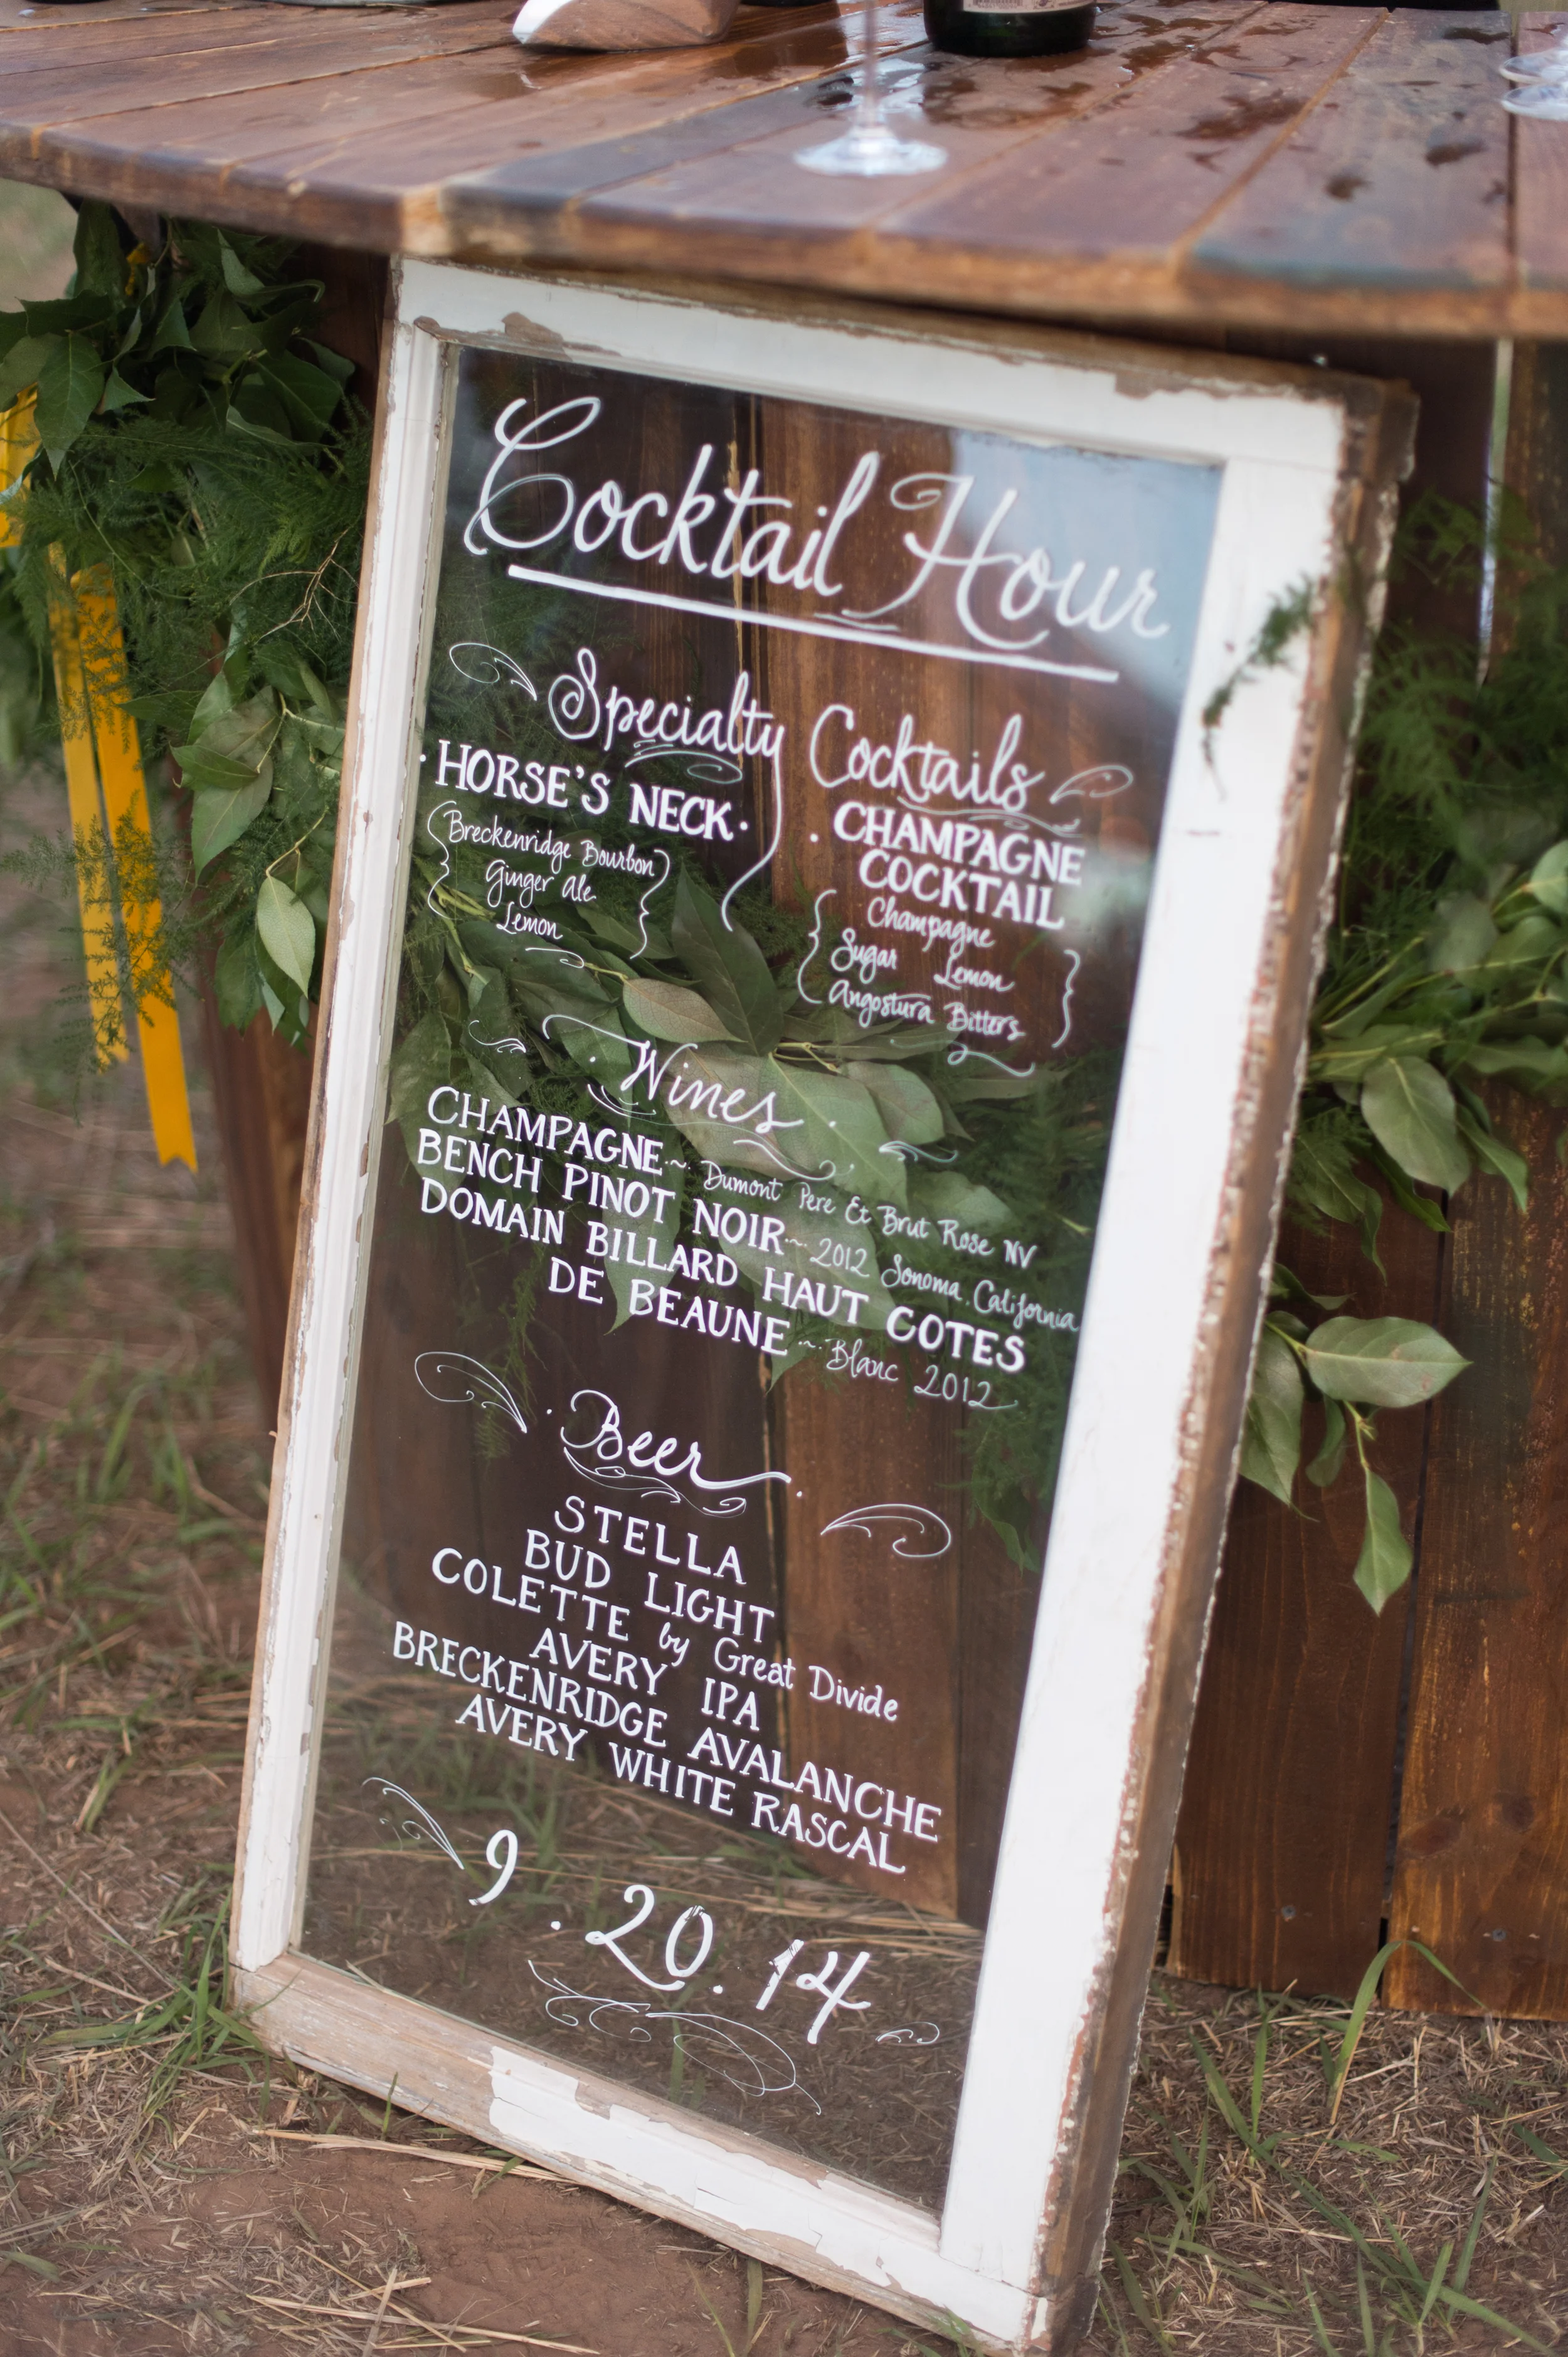 Cocktail Hour
Specialty Cocktails
· HORSE'S NECK ·
Breckenridge Bourbon
Ginger Ale
Lemon
· CHAMPAGNE
COCKTAIL
Champagne
Sugar Lemon
Angostura Bitters
· Wines ·
CHAMPAGNE ~ Dumont Pere Et Brut Rose NV
BENCH PINOT NOIR ~ 2012 Sonoma. California
DOMAIN BILLARD HAUT COTES
DE BEAUNE ~ Blanc 2012
· Beer ·
STELLA
BUD LIGHT
COLETTE by Great Divide
AVERY IPA
BRECKENRIDGE AVALANCHE
AVERY WHITE RASCAL
9.20.14